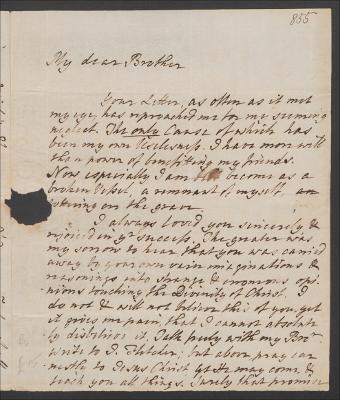 855
My dear Brother
Your Letter, as often as it met
my eye, has reproached me for my seeming
neglect. The only Cause of which has
been my own Uselesness. I have more will
than power of benefiting my friends.
Now especially I am become as a
broken Vessel, a remnant of myself an
tottering on the grave.
I always loved you sincerely &
rejoiced in yr success. The greater was
my sorrow to hear that you was carried
away by your own vain imaginations &
reasonings into strange & enormous opi-
nions touching the Divinity of Christ. I
do not & will not believe this of you, yet
it gives me pain, that I cannot absolute-
ly disbelieve it. Talk freely with my Bror
write to J. Fletcher; but above pray ear-
nestly to Jesus Christ yt He may come &
teach you all things. Surely that promise